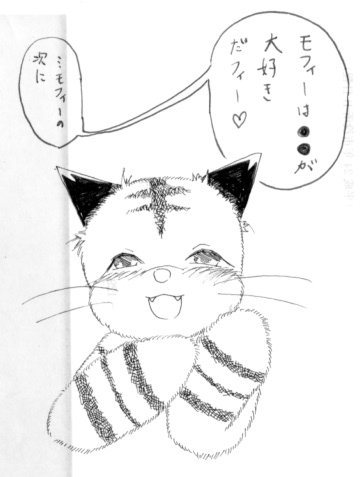 モフィーは●●が
大好き
だフィー♡
ミモフィーの
次に